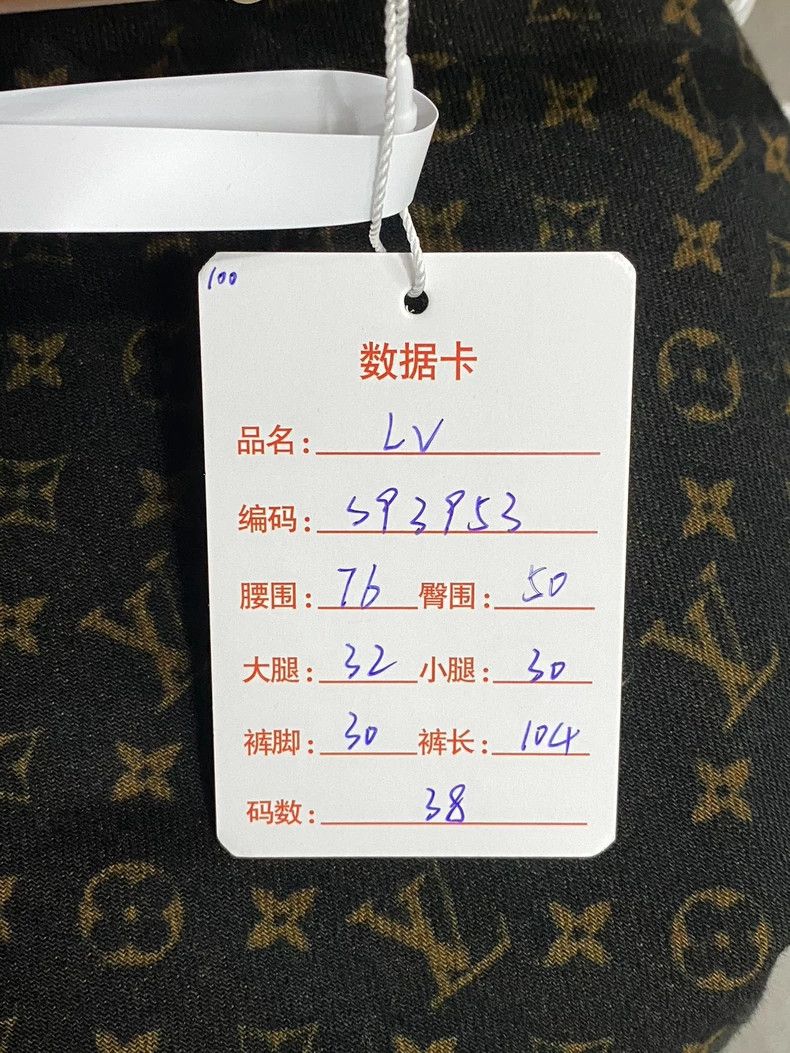 100
数据卡
品名: LV
编码: 593953
腰围: 76 臀围: 50
大腿: 32 小腿: 30
裤脚: 30 裤长: 104
码数: 38